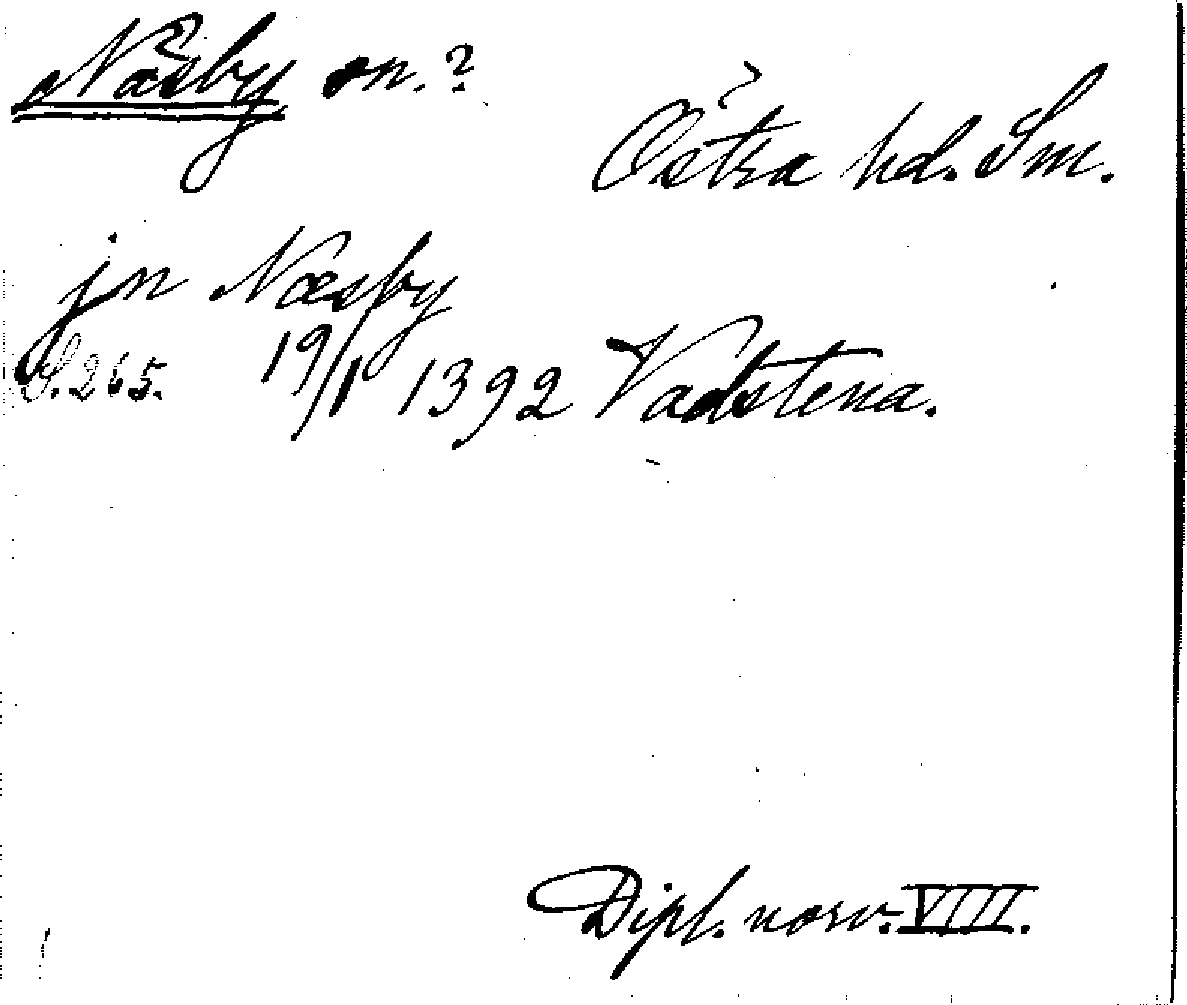 Näsby sn.?
Östra hd. Sm.
jn Næsby
S. 265. 19/1 1392 Vadstena.
Dipl. norv. VIII.